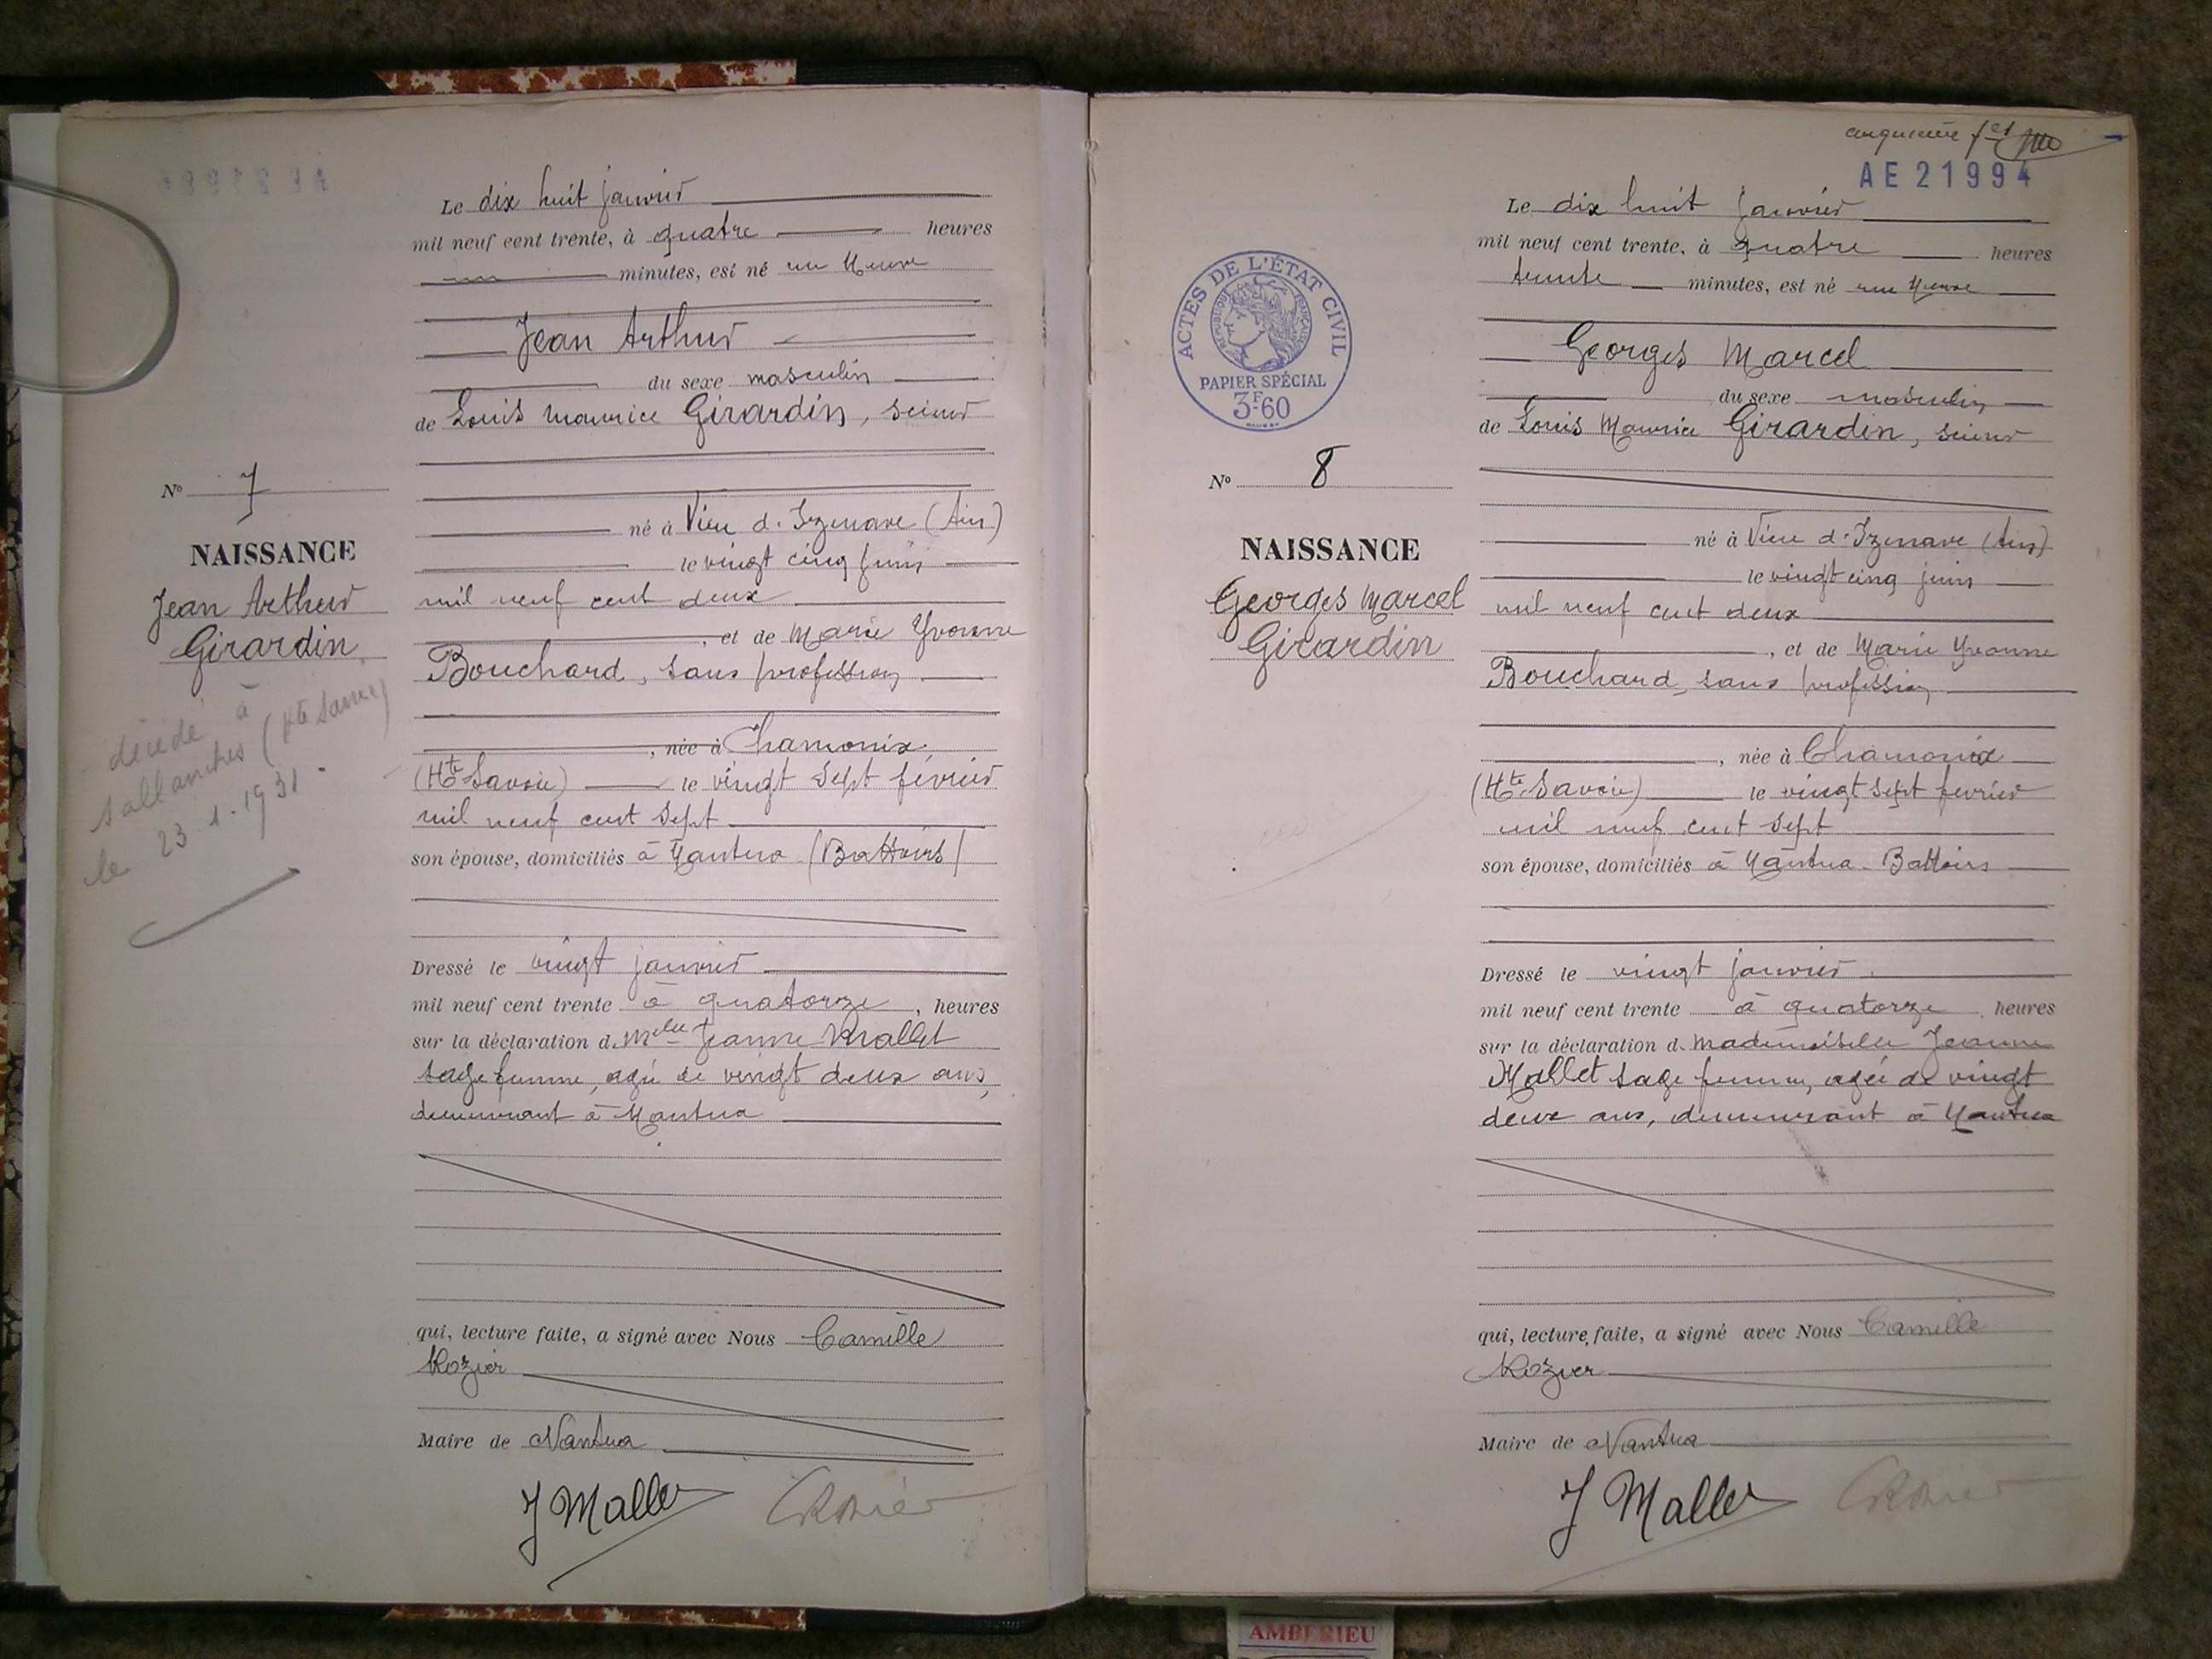 Le dix huit janvier
mil neuf cent trente, à quatre heures
minutes, est né rue Neuve
Jean Arthur
du sexe masculin
de Louis Maurice Girardin, scieur
né à Vieu d'Izenave (Ain)
le vingt cinq juin
mil neuf cent deux
, et de Marie Yvonne
Bouchard, sans profession
, née à Chamonix
(Hte Savoie) le vingt sept février
mil neuf cent sept
son épouse, domiciliés à Nantua (Battoirs)
Dressé le vingt janvier
mil neuf cent trente à quatorze, heures
sur la déclaration de Melle Jeanne Mallet
sage femme, agée de vingt deux ans,
demeurant à Nantua
qui, lecture faite, a signé avec Nous Camille
Rozier
Maire de Nantua
J Mallet
CRozier
No 7
NAISSANCE
Jean Arthur
Girardin
décédé à
Sallanches (Hte Savoie)
le 23.1.1931
AE 21994
Le dix huit janvier
mil neuf cent trente, à quatre heures
trente minutes, est né rue Neuve
Georges Marcel
du sexe masculin
de Louis Maurice Girardin, scieur
né à Vieu d'Izenave (Ain)
le vingt cinq juin
mil neuf cent deux
, et de Marie Yvonne
Bouchard, sans profession
, née à Chamonix
(Hte Savoie) le vingt sept février
mil neuf cent sept
son épouse, domiciliés à Nantua - Battoirs
Dressé le vingt janvier
mil neuf cent trente à quatorze heures
sur la déclaration de Mademoiselle Jeanne
Mallet sage femme, agée de vingt
deux ans, demeurant à Nantua
qui, lecture faite, a signé avec Nous Camille
Rozier
Maire de Nantua
J Mallet
CRozier
ACTES DE L'ÉTAT CIVIL
RÉPUBLIQUE FRANÇAISE
PAPIER SPÉCIAL
3F-60
No 8
NAISSANCE
Georges Marcel
Girardin
AMBERIEU